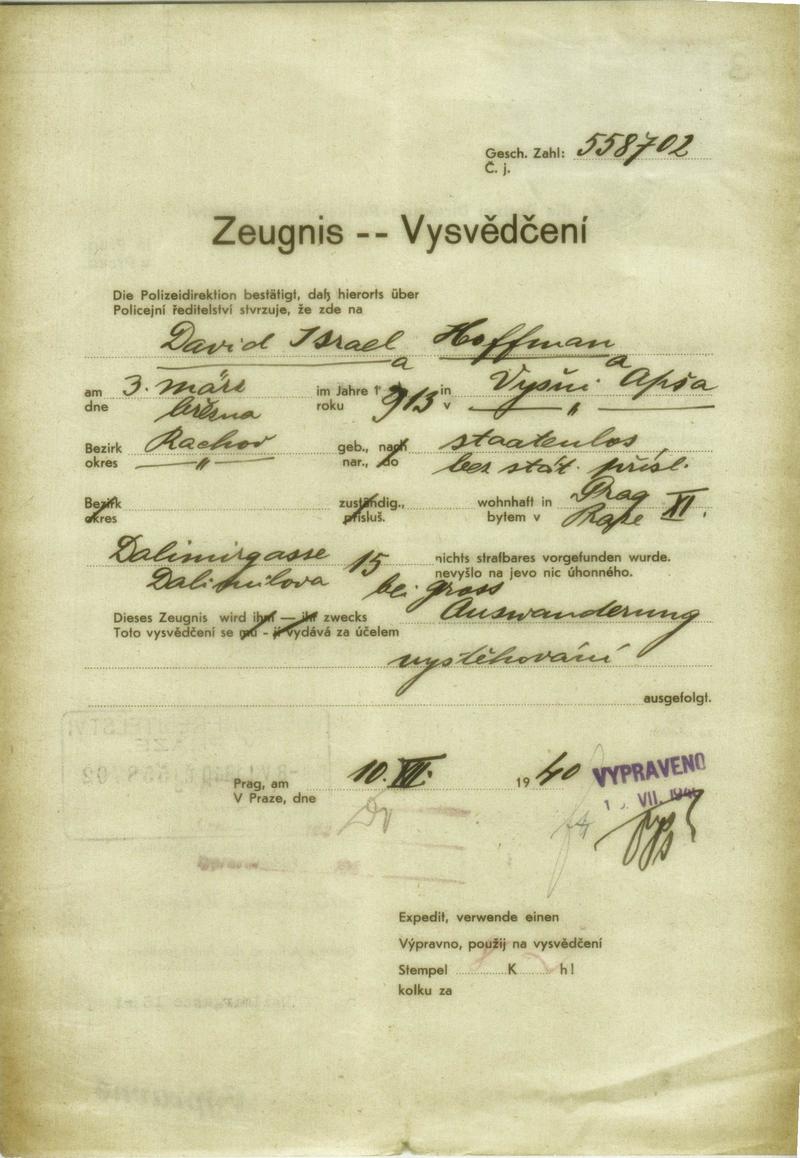 Gesch. Zahl: 558702
Č. j.
Zeugnis -- Vysvědčení
Die Polizeidirektion bestätigt, daß hierorts über
Policejní ředitelství stvrzuje, že zde na
David Israel Hoffman
a a
am 3. märz im Jahre 1913 in Vyšni Apša
dne března roku v — " —
Bezirk Rachov geb., nach staatenlos
okres — " — nar., do bez stát. přísl.
Bezirk zuständig., wohnhaft in Prag XI.
okres přísluš. bytem v Praze
Dalimirgasse 15 nichts strafbares vorgefunden wurde.
Dalimilova nevyšlo na jevo nic úhonného.
bei gross
Dieses Zeugnis wird ihm — ihr zwecks Auswanderung
Toto vysvědčení se mu - jí vydává za účelem
vystěhování
ausgefolgt.
Prag, am 10. VII. 1940
V Praze, dne
VYPRAVENO
VII. 1940
Expedit, verwende einen
Výpravno, použij na vysvědčení
Stempel K h!
kolku za